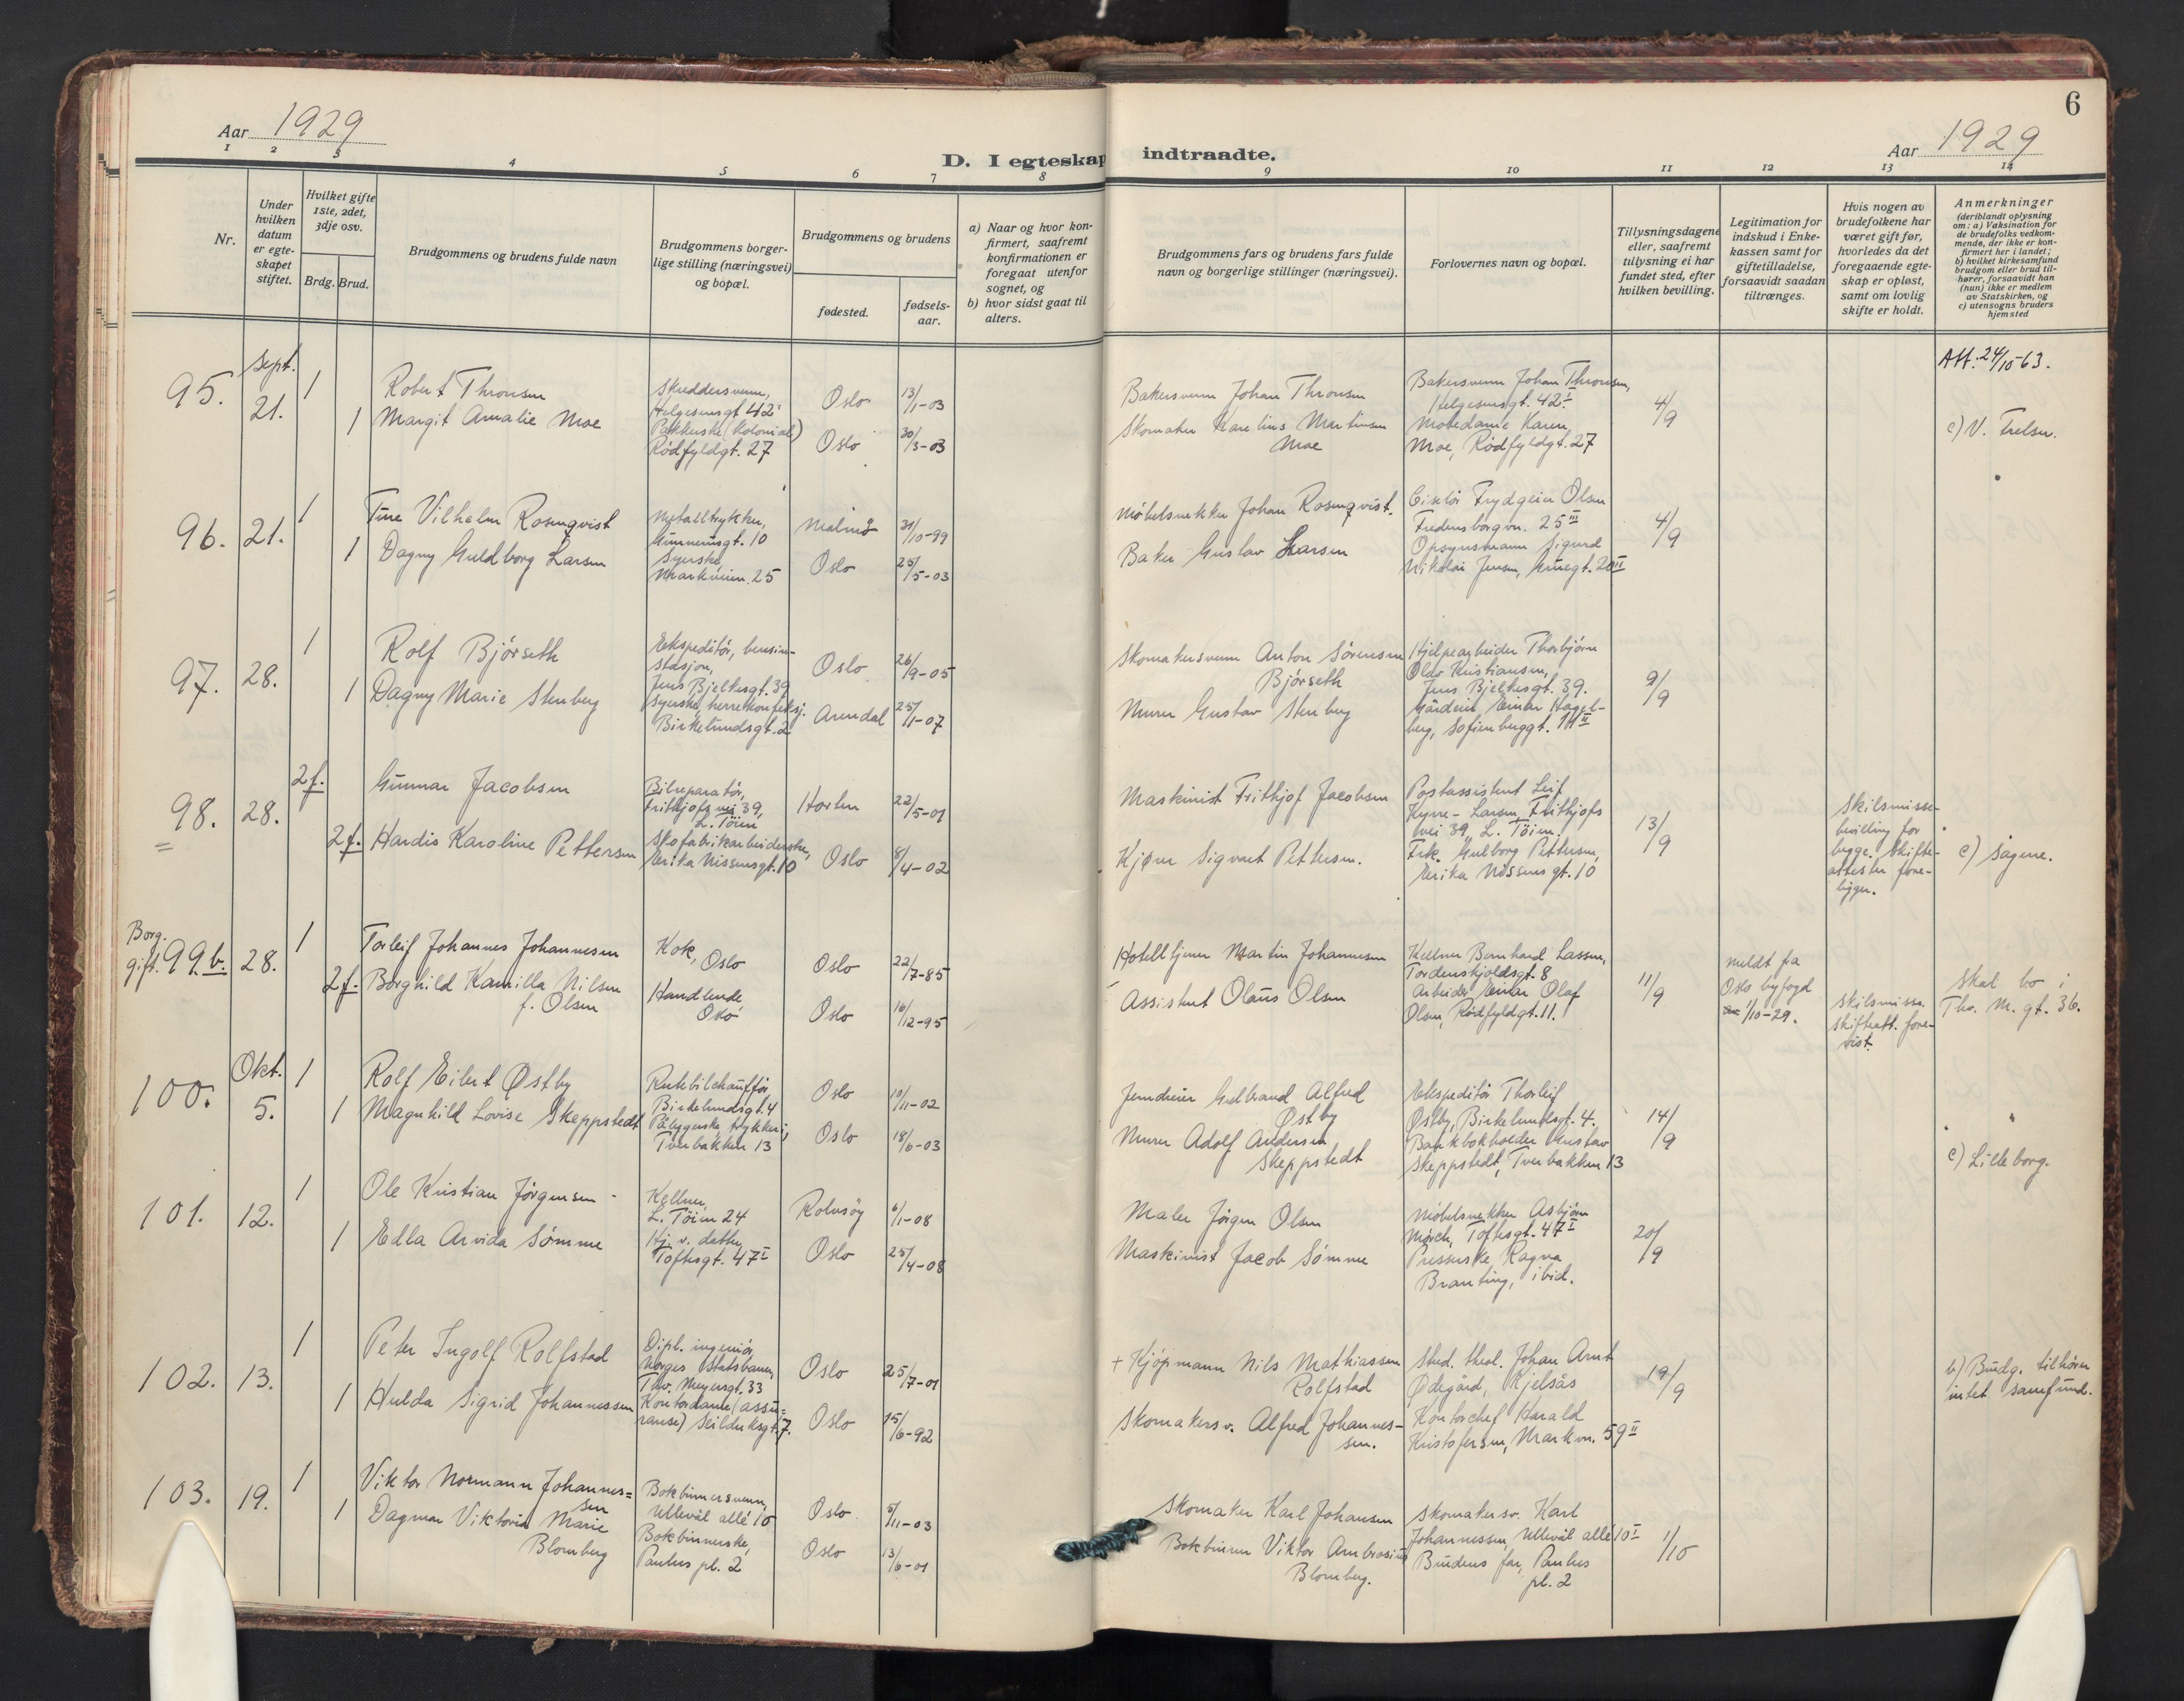 Aar 1929
D. I egteskap indtraadte.
Aar 1929
6
1 2 3 4 5 6 7 8 9 10 11 12 13 14
Nr.
Under hvilken datum er egteskapet stiftet.
Hvilket gifte 1ste, 2det, 3dje osv.
Brdg. Brud.
Brudgommens og brudens fulde navn
Brudgommens borgerlige stilling (næringsvei) og bopæl.
Brudgommens og brudens
fødested.
fødselsaar.
a) Naar og hvor konfirmert, saafremt konfirmationen er foregaat utenfor sognet, og
b) hvor sidst gaat til alters.
Brudgommens fars og brudens fars fulde navn og borgerlige stillinger (næringsvei).
Forlovernes navn og bopæl.
Tillysningsdagene eller, saafremt tillysning ei har fundet sted, efter hvilken bevilling.
Legitimation for indskud i Enkekassen samt for giftetilladelse, forsaavidt saadan tiltrænges.
Hvis nogen av brudefolkene har været gift før, hvorledes da det foregaaende egteskap er opløst, samt om lovlig skifte er holdt.
Anmerkninger (deriblandt oplysning om: a) Vaksination for de brudefolks vedkommende, der ikke er konfirmert her i landet; b) hvilket kirkesamfund brudgom eller brud tilhører, forsaavidt han (hun) ikke er medlem av Statskirken, og c) utensogns bruders hjemsted
95. Sept. 21. 1
Robert Thronsen
Skreddersvenn,
Helgesensgt 42 I
Oslo 13/1-03
Bakersvenn Johan Thronsen
Bakersvenn Johan Thronsen,
Helgesensgt. 42 I
4/9
Att. 24/10-63.
1 Margit Amalie Moe
Pakkerske (kolonial)
Rødfyldgt. 27
Oslo 30/3-03
Skomaker Karelius Martinsen
Moe
Motedame Karen
Moe, Rødfyldgt. 27
c) V. Frelser.
96. 21. 1
Ture Vilhelm Rosenqvist
Metalltrykker,
Gunnerusgt. 10
Malmø 31/10-99
Møbelsnekker Johan Rosenqvist.
Ciselør Frydgeir Olsen
Fredensborgvn. 25 III
4/9
1 Dagny Guldborg Larsen
Syerske,
Markveien 25
Oslo 25/5-03
Baker Gustav Larsen
Opsynsmann Sigurd
Nikolai Jensen, 20 II
97. 28. 1
Rolf Bjørseth
Ekspeditør, bensin-
stasjon,
Jens Bjelkesgt. 39
Oslo 26/9-05
Skomakersvenn Anton Sørensen
Bjørseth
Hjelpearbeider Thorbjørn
Olav Kristiansen,
Jens Bjelkesgt. 39.
9/9
1 Dagny Marie Stenberg
Syerske, herrekonfeksj.
Birkelundsgt. 2
Arendal 25/1-07
Murer Gustav Stenberg
Gårdeier Einar Hagel-
berg, Sofienberggt. 11 II
98. 28. 2 f.
Gunnar Jacobsen
Bilreparatør,
Frithjofs vei 39,
L. Tøien
Horten 22/5-01
Maskinist Frithjof Jacobsen
Postassistent Leif
Kyrre-Larsen, Frithjofs
vei 39, L. Tøien.
13/9
Skilsmisse-
bevilling for
begge. Skifte-
attester fore-
ligger.
2 f. Hardis Karoline Pettersen
Skofabrikarbeiderske,
Erika Nissensgt. 10
Oslo 8/4-02
Kjører Sigvart Pettersen.
Frk. Gulborg Pettersen,
Erika Nissensgt. 10
c) Sagene.
Borg.
gift. 99 b. 28. 1
Torleif Johannes Johannesen
Kok,
Oslo
Oslo 22/7-85
Hotelltjener Martin Johannesen
Kellner Bernhard Lassen,
Tordenskjoldsgt. 8
11/9
meldt fra
Oslo byfogd
1/10-29.
2 f. Borghild Kamilla Nilsen
f. Olsen
Handlende,
Oslo
Oslo 16/12-95
Assistent Olaus Olsen
Arbeider Einar Olaf
Olsen, Rødfyldgt. 11.
Skilsmisse.
skifteatt. fore-
vist.
Skal bo i
Thv. M. gt. 36.
100. Okt. 5. 1
Rolf Eilert Østby
Rutebilchauffør
Birkelundsgt. 4
Oslo 10/11-02
Jerndreier Gulbrand Alfred
Østby
Ekspeditør Thorleif
Østby, Birkelundsgt. 4.
14/9
1 Magnhild Lovise Skeppstedt
Påleggerske, trykkeri,
Tverbakken 13
Oslo 18/6-03
Murer Adolf Andersen
Skeppstedt
Bankbokholder Gustav
Skeppstedt, Tverbakken 13
c) Lilleborg.
101. 12. 1
Ole Kristian Jørgensen
Kellner,
L. Tøien 24
Rolvsøy 6/1-08
Maler Jørgen Olsen
Møbelsnekker Asbjørn
Mørch, Toftesgt. 47 I
20/9
1 Edla Arvida Sømme
Hj. v. dette,
Toftesgt. 47 I
Oslo 25/4-08
Maskinist Jacob Sømme
Presserske Ragna
Branting, ibid.
102. 13. 1
Peter Ingolf Rolfstad
Dipl. ingeniør,
Norges Statsbaner,
Thv. Meyersgt. 33
Oslo 25/7-01
+ Kjøpmann Nils Mathiassen
Rolfstad
Stud. theol. Johan Arnt
Ødegård, Kjelsås
19/9
b) Brudg. tilhører
intet samfund.
1 Hulda Sigrid Johannessen
Kontordame (assu-
ranse) Seilduksgt. 7.
Oslo 15/6-92
Skomakersv. Alfred Johannes-
sen.
Kontorchef Harald
Kristofersen, Markvn. 59 II
103. 19. 1
Viktor Normann Johannes-
sen
Bokbinnersvenn,
Ullevål allé 10
Oslo 5/11-03
Skomaker Karl Johansen
Skomakersv. Karl
Johannessen, Ullevål allé 10 I
1/10
1 Dagmar Viktoria Marie
Blomberg
Bokbinnerske,
Paulus pl. 2
Oslo 13/6-01
Bokbinner Viktor Ambrosius
Blomberg.
Brudens far, Paulus
pl. 2